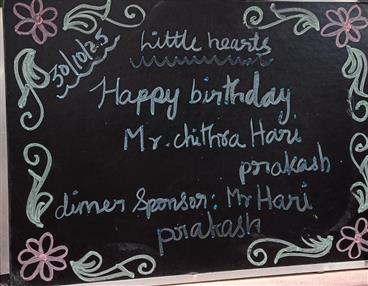 30/10/25
Little hearts
Happy birthday
Mr. chithra Hari
prakash
dinner sponsor: Mr Hari
prakash